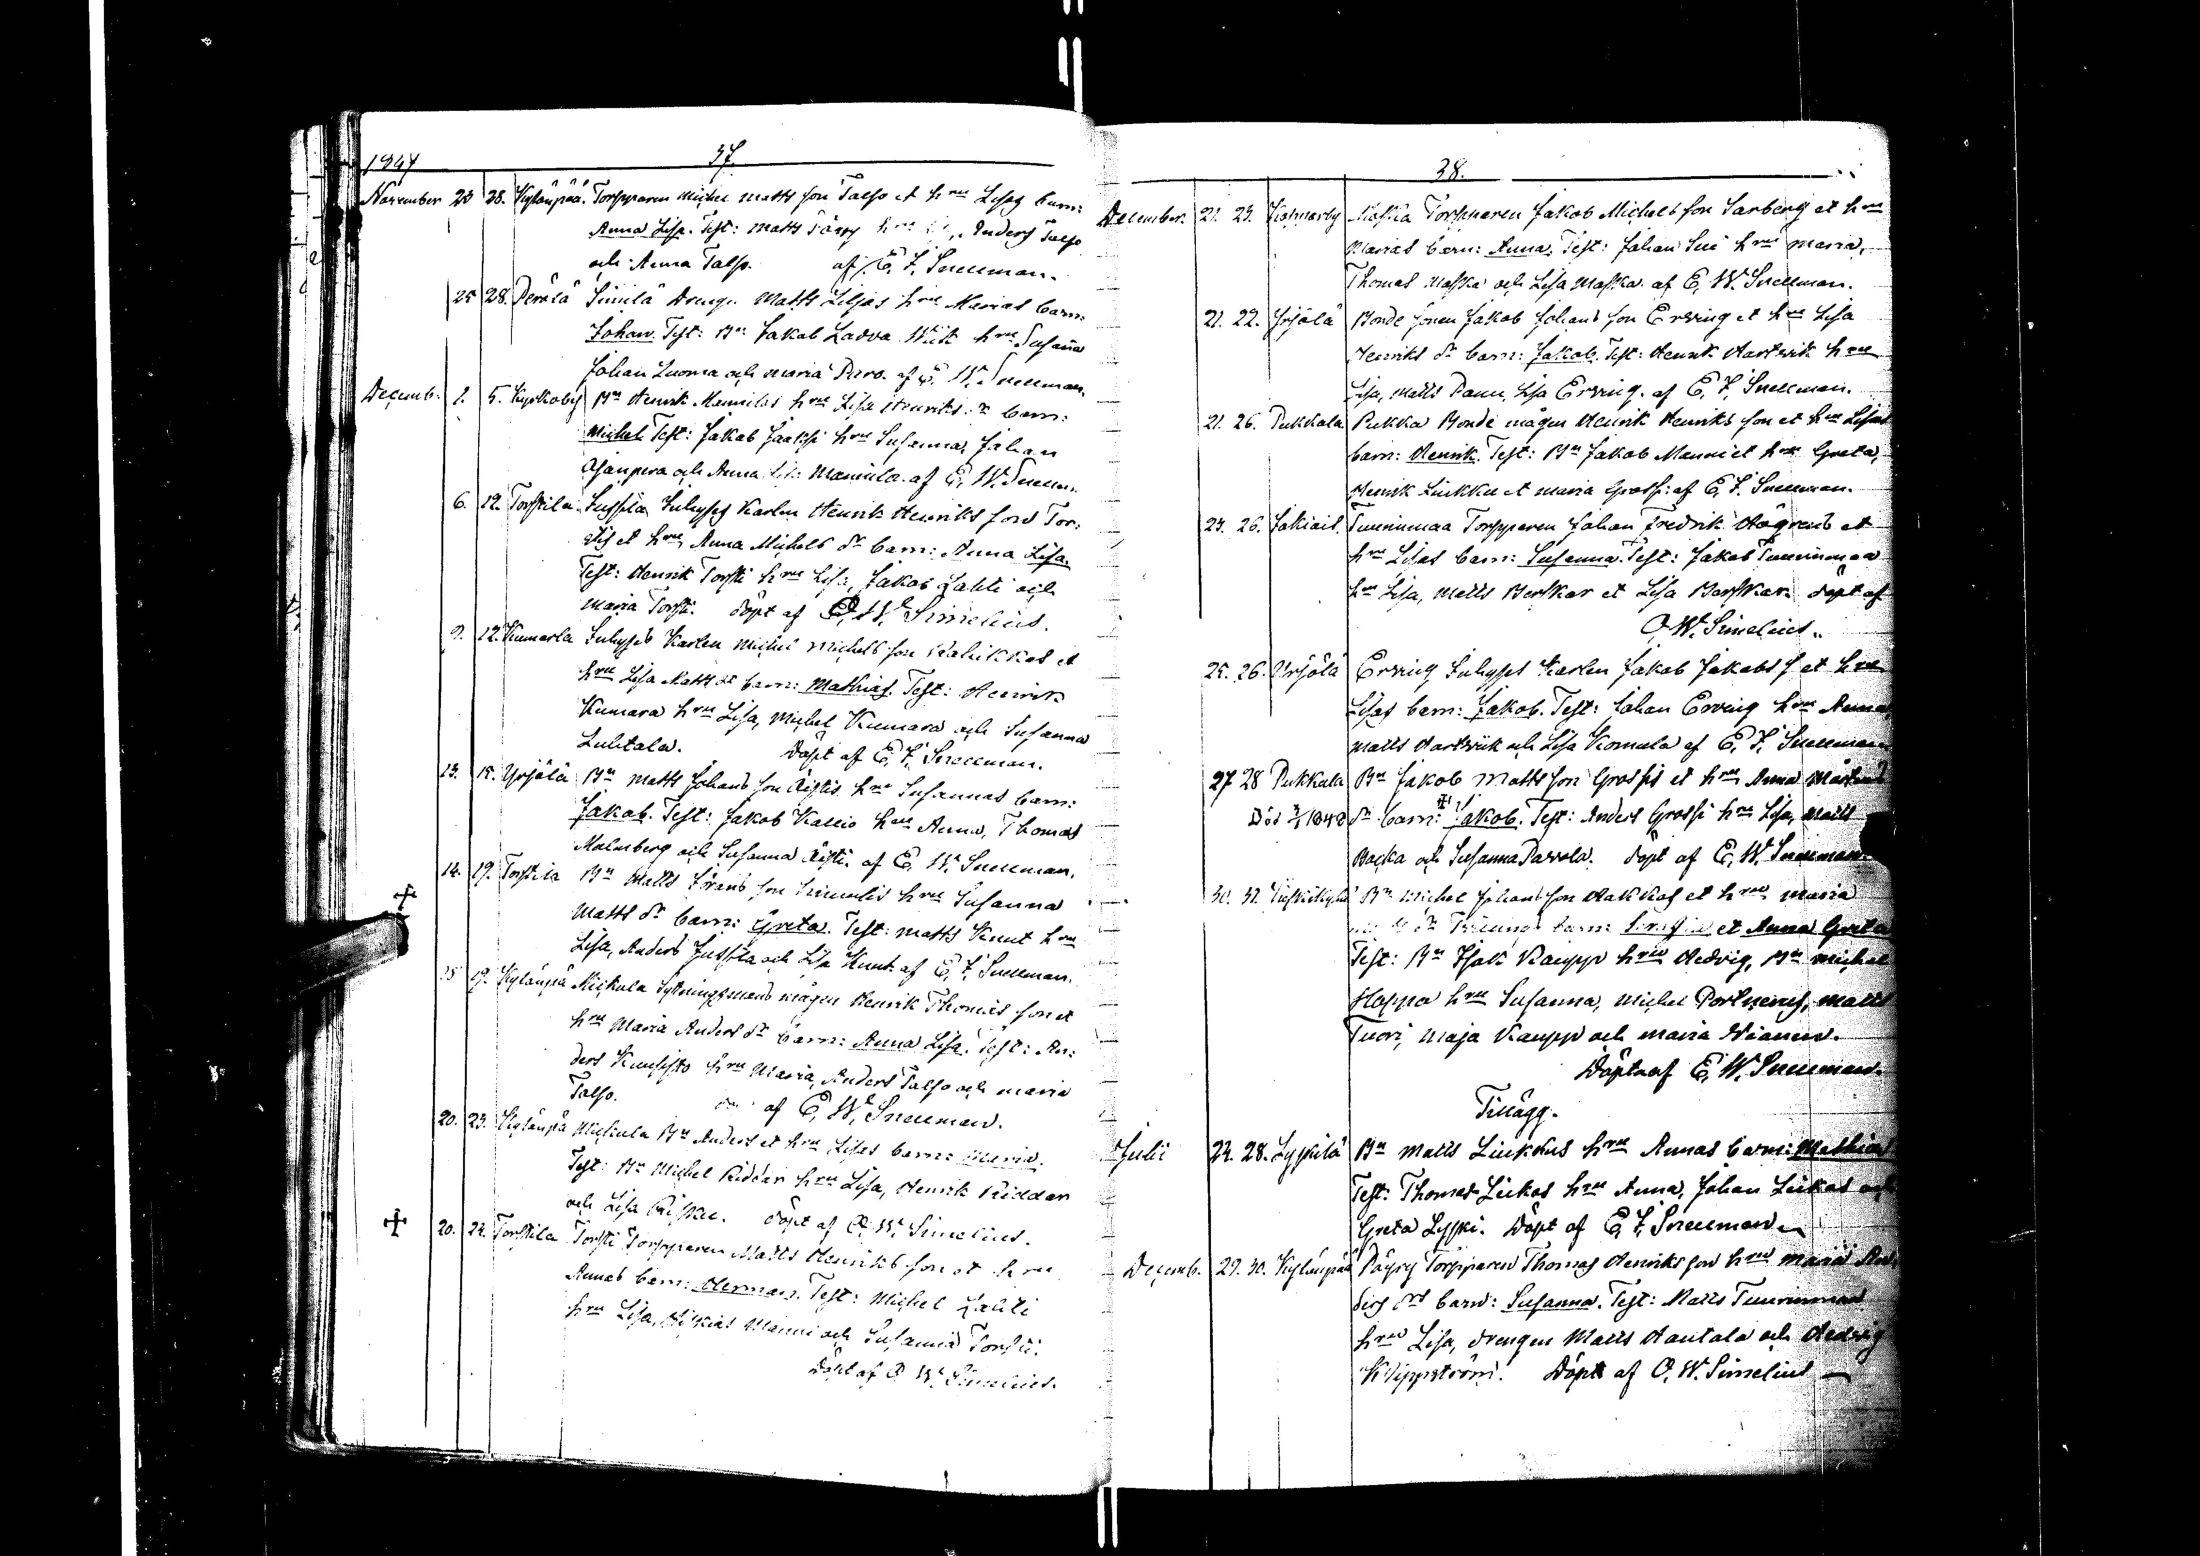 1847
37.
November 23 28. Kyläupää. Torpparen Michel Matts son Talso et hru Lisas barn:
Anna Lisa. Test: Matts Päyry hru Anders Talso
och Anna Talso. af E. F. Snellman.
25 28. Perälä Simila Dreng. Matts Liljas hru Marias barn:
Johan. Test: Bn Jakob Ladva Wiik hru Susanna
Johan Luoma och Maria Puro. af E. W. Snellman.
Decemb. 1. 5. Kyrkoby Bn Henrik Mannilas hru Lisa Henriks dr barn:
Michel. Test: Jakob Jaaksi hru Susanna, Johan
och Anna Mannila. af E. W. Snellm.
6. 12. Torstila Jussila Inhyses Karlen Henrik Henriks son Tor:
stis et hru Anna Michels dr barn: Anna Lisa.
Test: Henrik Torsti hru Lisa, Jakob Lahti och
Maria Torsti. döpt af O. W. Simelius.
9. 12. Kumarla Inhyses Karlen Michel Michels son et
hru Lisa Matts dr barn: Mathias. Test: Henrik
Kumara hru Lisa, Michel Kumara och Susanna
Luhtala. Döpt af E. F. Snellman.
13. 15. Yrjälä Bn Matts Johans son Äijtis hru Susannas barn:
Jakob. Test: Jakob Kallio hru Anna, Thomas
Malmberg och Susanna Äijti. af E. W. Snellman.
14. 19. Torstila Bn Matts Görans son hru Susanna
Matts dr barn: Greta. Test: Matts Knut hru
Lisa, Anders Jussila och Lisa Knut. af E. F. Snellman.
15 19. Kyläupä Mickula Sytningsmans mågen Henrik Thomas son et
hru Maria Anders dr barn: Anna Lisa. Test: An:
ders Kuusisto hru Maria, Anders Talso och Maria
Talso. af E. W. Snellman.
20. 23. Kyläupä Mickula Bn Anders et hru Lisas barn: Maria.
Test: Bn Michel Riddar hru Lisa, Henrik Riddar
och Lisa döpt af O. W. Simelius.
20. 24. Torstila Torsti Torpparen Matts Henriks son et hru
Annas barn: Herman. Test: Michel Lahti
hru Lisa, Manni och Susanna Torsti.
Döpt af O. W. Simelius.
38.
December. 21. 23. Kotmarby Maska Torpparen Jakob Michels son Sarberg et hru
Marias barn: Anna. Test: Johan hru Maria,
Thomas Maska och Lisa Maska. af E. W. Snellman.
21. 22. Yrjälä Bonde sonen Jakob Johans son Erving et hru Lisa
Henriks dr barn: Jakob. Test: Henrik Hartvik hru
Lisa, Matts Panu, Lisa Erving. af E. F. Snellman.
21. 26. Pukkala Pukka Bonde mågen Henrik Henriks son et hru Lisas
barn: Henrik. Test: Bn Jakob Manni et hru Greta,
Henrik Liukku et Maria Grossi af E. F. Snellman.
23. 26. Tuurinmaa Torpparen Johan Fredrik Högrens et
hru Lisas barn: Susanna. Test: Jakob Tuurinmaa
hru Lisa, Matts Berskar et Lisa Berskar. döpt af
O. W. Simelius.
25. 26. Yrjälä Erving Inhyses Karlen Jakob Jakobs s et hru
Lisas barn: Jakob. Test: Johan Erving hru Anna
Matts Hartvik och Lisa Komula af E. F. Snellman
27 28 Pukkala Bn Jakob Matts son Grossis et hru Anna Mårtens
Död 1848 dr barn: Jakob. Test: Anders Grossi hru Lisa, Matts
Backa och Susanna Parrola. Döpt af E. W. Snellman.
30. 31. Bn Michel Johans son Hakkas et hru Maria
barn: et Anna Greta
Test: Bn Isak Kauppo hru Hedvig, Bn Michel
Hoppa hru Susanna, Michel Portnerus, Matts
Tuori, Maja Kauppo och Maria
Döpta af E. W. Snellman.
Tillägg.
Julii 24. 28. Lyskilä Bn Matts Liukkus hru Annas barn: Mathias
Test: Thomas Liukas hru Anna, Johan Liukas och
Greta Lyski. Döpt af E. F. Snellman.
Decemb. 29. 30. Kyläupää Päyry Torpparen Thomas Henriks son hru Maria An:
ders drs barn: Susanna. Test: Matts Tuurinmaa
hru Lisa, drengen Matts Hautala och Hedvig
Klippström. Döpt af O. W. Simelius